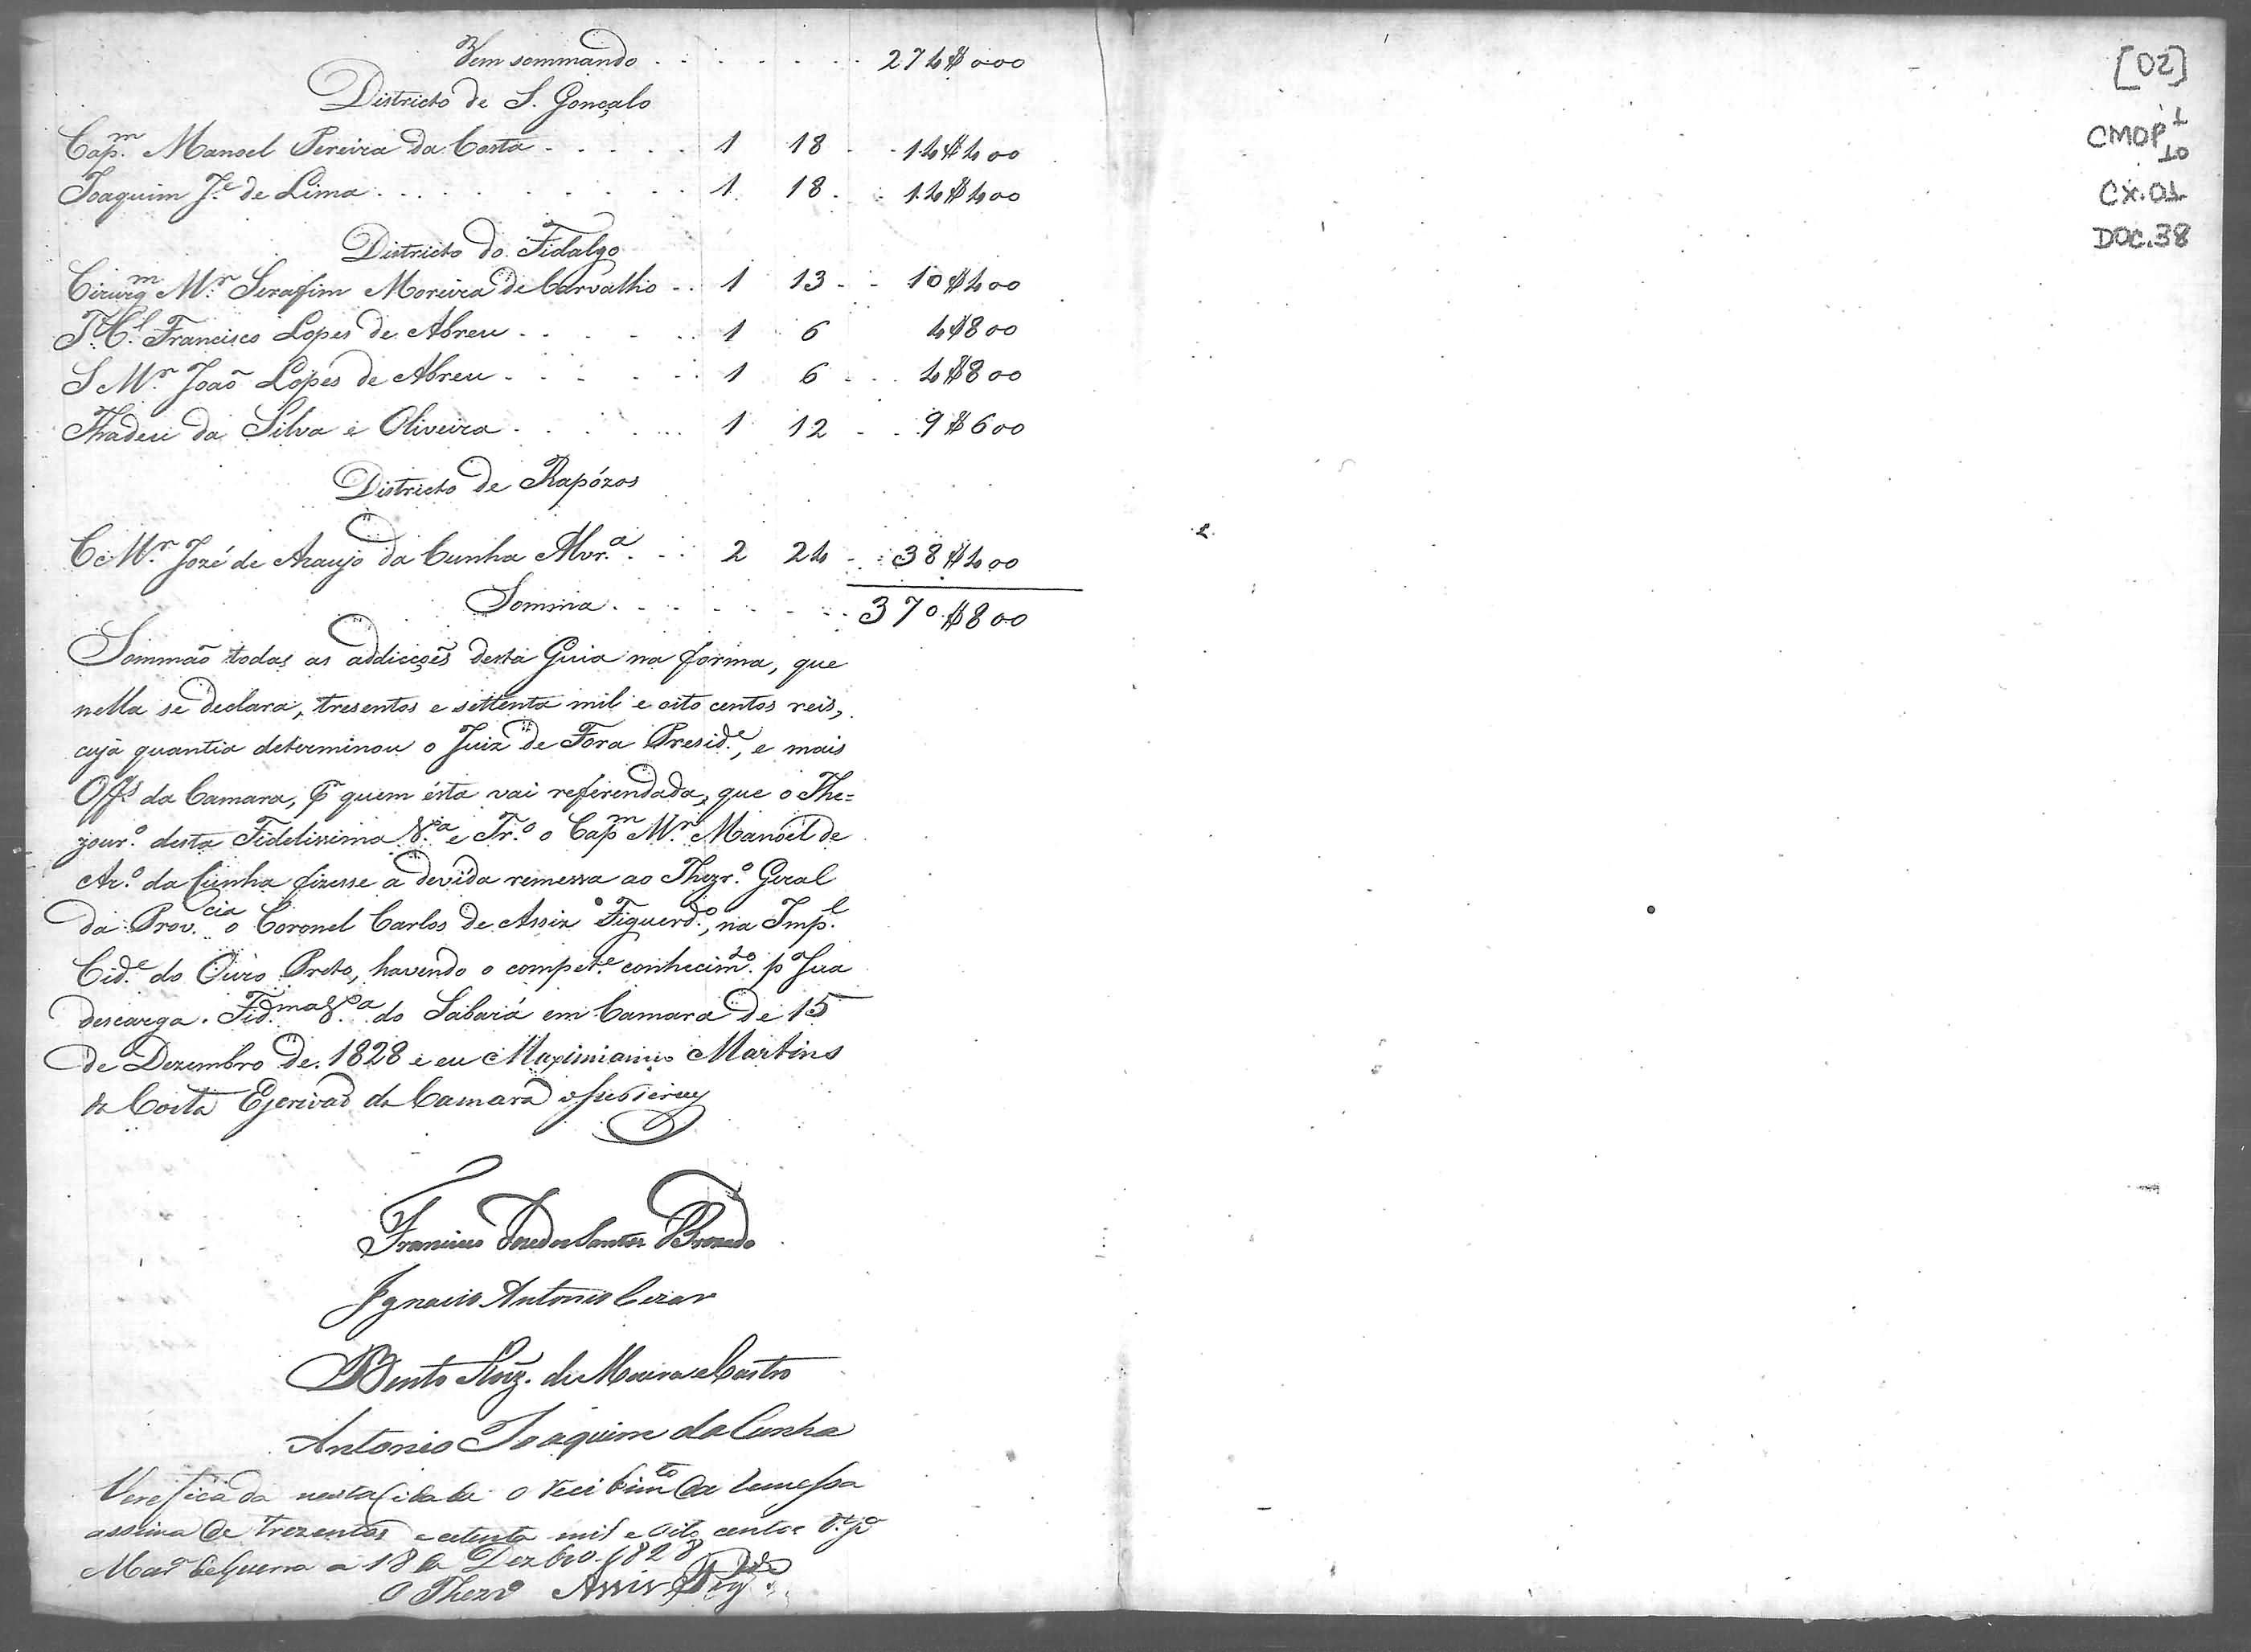 Vem sommando . . . . . . . 274$000
Districto de S. Gonçalo
Cap.m Manoel Pereira da Costa . . . . . 1 18 . . 14$400
Joaquim J.e de Lima . . . . . . . . . 1 18 . . 14$400
Districto do Fidalgo
Cirurg.m M.r Serafim Moreira de Carvalho . . 1 13 . . 10$400
T.C.l Francisco Lopes de Abreu . . . . . . 1 6 4$800
S M.r João Lopes de Abreu . . . . . 1 6 . . . 4$800
Thadeu da Silva e Oliveira . . . . . . . 1 12 . . . 9$600
Districto de Rapózos
C M.r Jozé de Araujo da Cunha Alvr.a . . . 2 24 . . 38$400
Somma . . . . . . . . 370$800
Sommão todas as addicçoẽs desta Guia na forma, que
nella se declara, tresentos e settenta mil e oito centos reis,
cuja quantia determinou o Juiz de Fora Presid.e, e mais
Off.s da Camara, p.r quem ésta vai referendada, que o The=
zour.o desta Fidelissima V.a e Tr.o o Cap.m M.r Manoel de
Ar.o da Cunha fizesse a devída remessa ao Thezr.o Geral
da Prov.cia o Coronel Carlos de Assiz Figuerd.o, na Imp.l
Cid.e do Ouro Preto, havendo o compet.e conhecim.to p.a sua
descarga. Fid.ma V.a do Sabará em Camara de 15
de Dezembro de 1828 e eu Maximiano Martins
da Costa Escrivaõ da Camara o subscrevy
Francisco Jose dos Santos Brochado
Ignacio Antonio Cezar
Bento Roiz. de Moura e Castro
Antonio Joaquim da Cunha
Verefica da nesta Cidade o recibim.to da remessa
assima de trezentos e setenta mil e oito centos
a 18 de Dezbro 1828
O Thezr.o Assis Fig.do
[02]
CMOP 1
10
CX.01
DOC.38